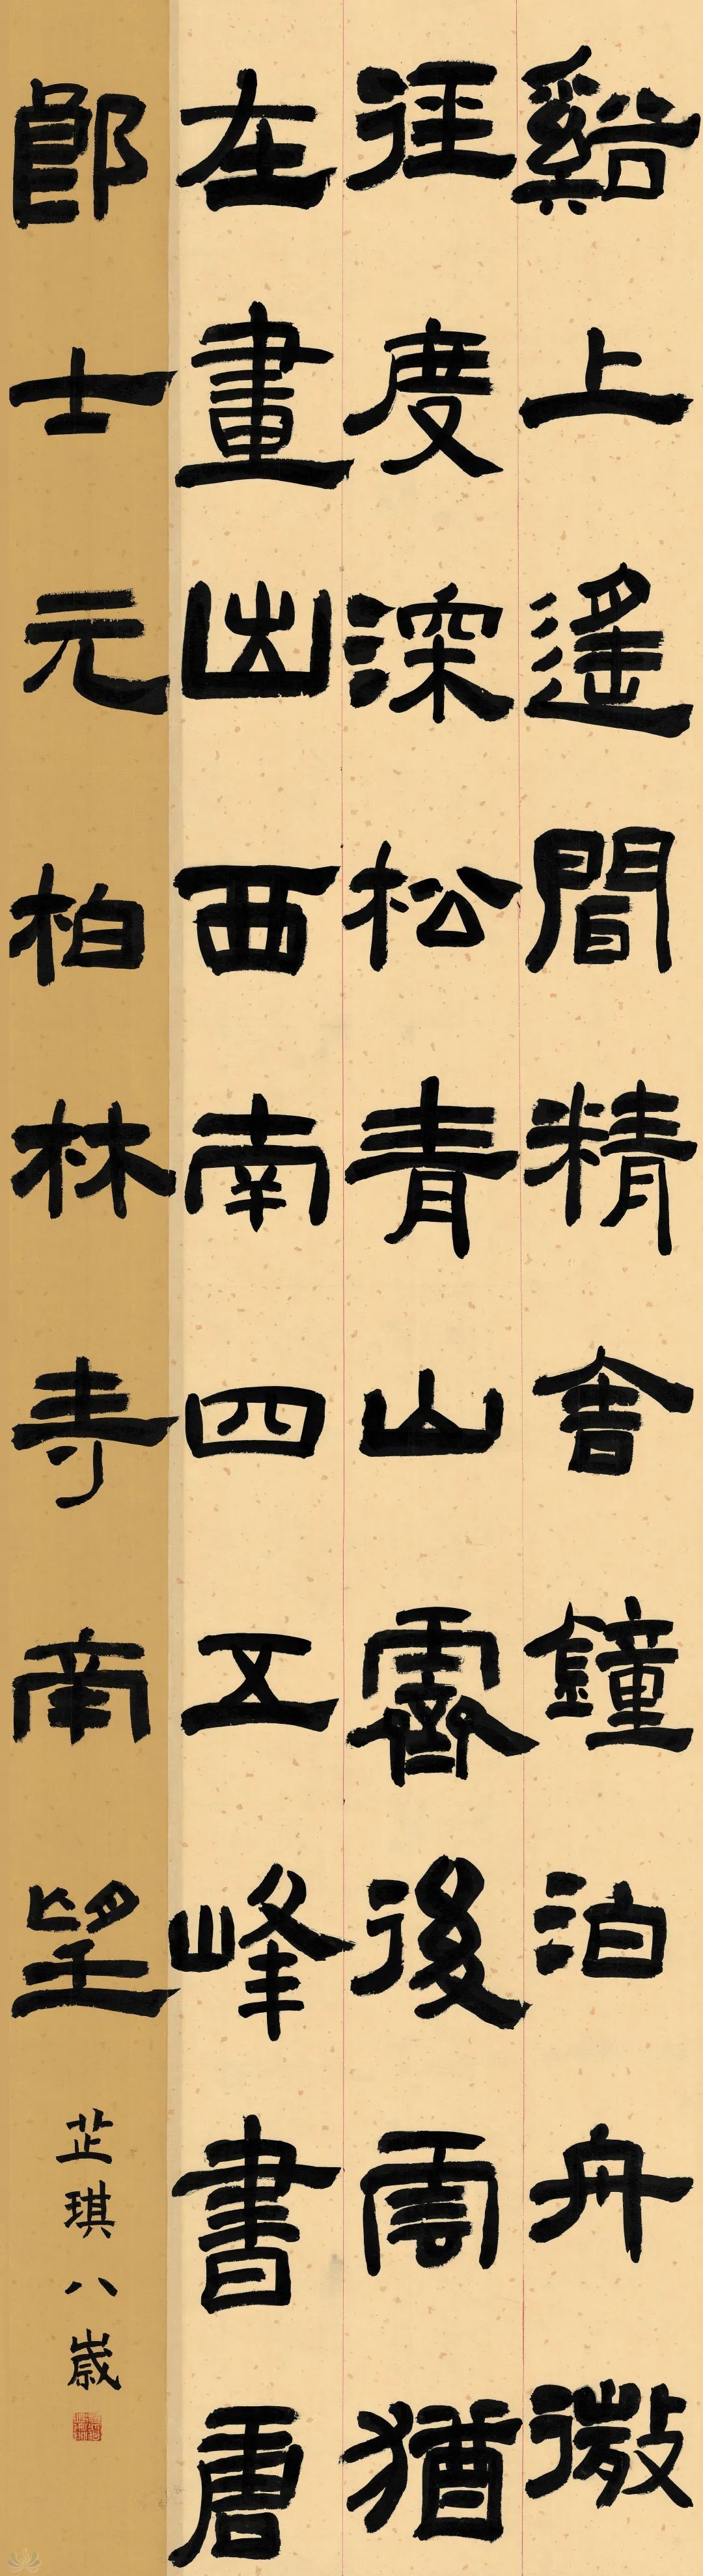 谿上遙聞精舍鐘泊舟微
徑度深松青山霽後雲猶
在畫出西南四五峰書唐
郎士元柏林寺南望
芷琪八歲